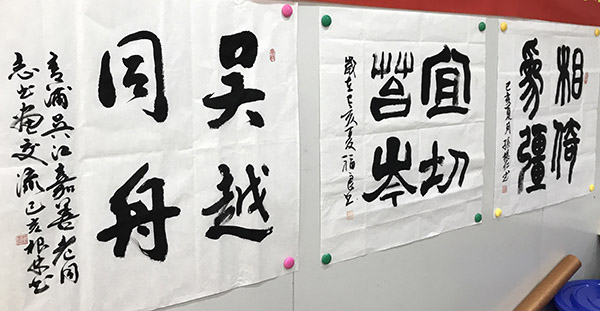 吴越
同舟
青浦吴江嘉善老同
志书画交流己亥根林书
宜切
苔岑
歲在己亥夏福良书
相倚
為彊
己亥夏月